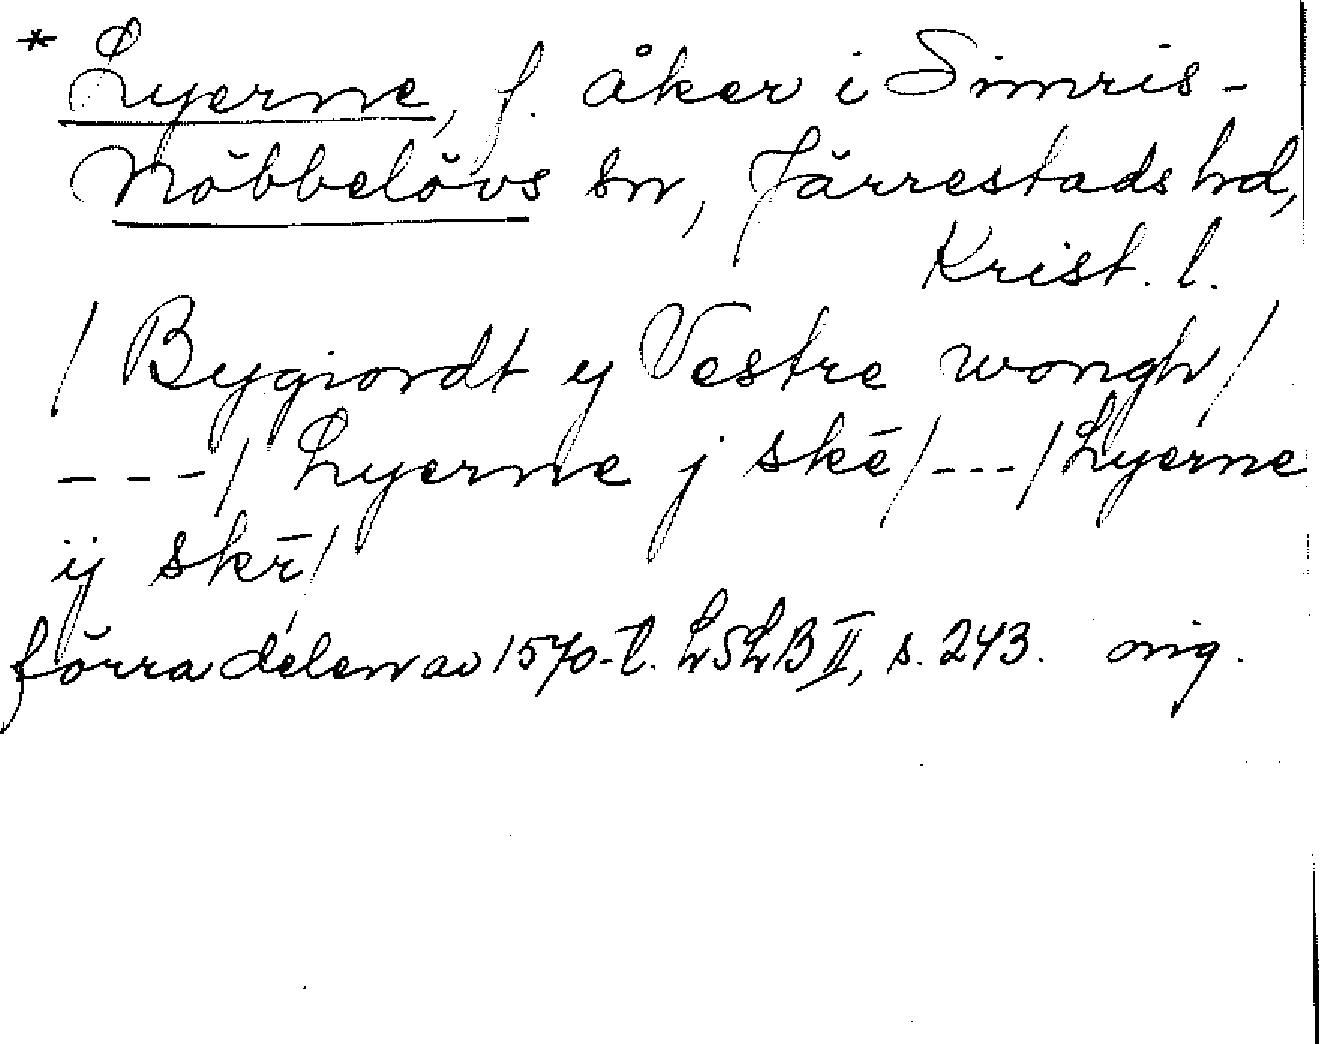 * Lyerne, f. åker i Simris-
Nöbbelövs sn, Järrestads hd,
Krist. l.
/ Bygiordt y Vestre wongh /
---/ Lyerne j skē /---/ Lyerne
ij skē /
förra delen av 1570-t. LSLB II, s. 243. orig.